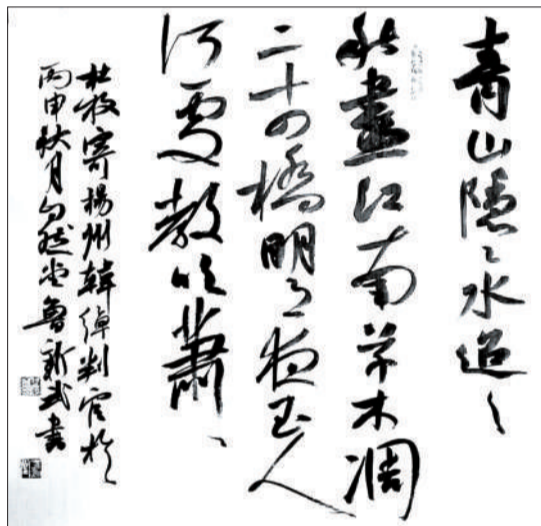 青山隱〻水迢〻
秋盡江南草木凋
二十四橋明月夜玉人
何處教吹簫
杜牧寄楊州韓綽判官於
丙申秋月自然堂魯新武書